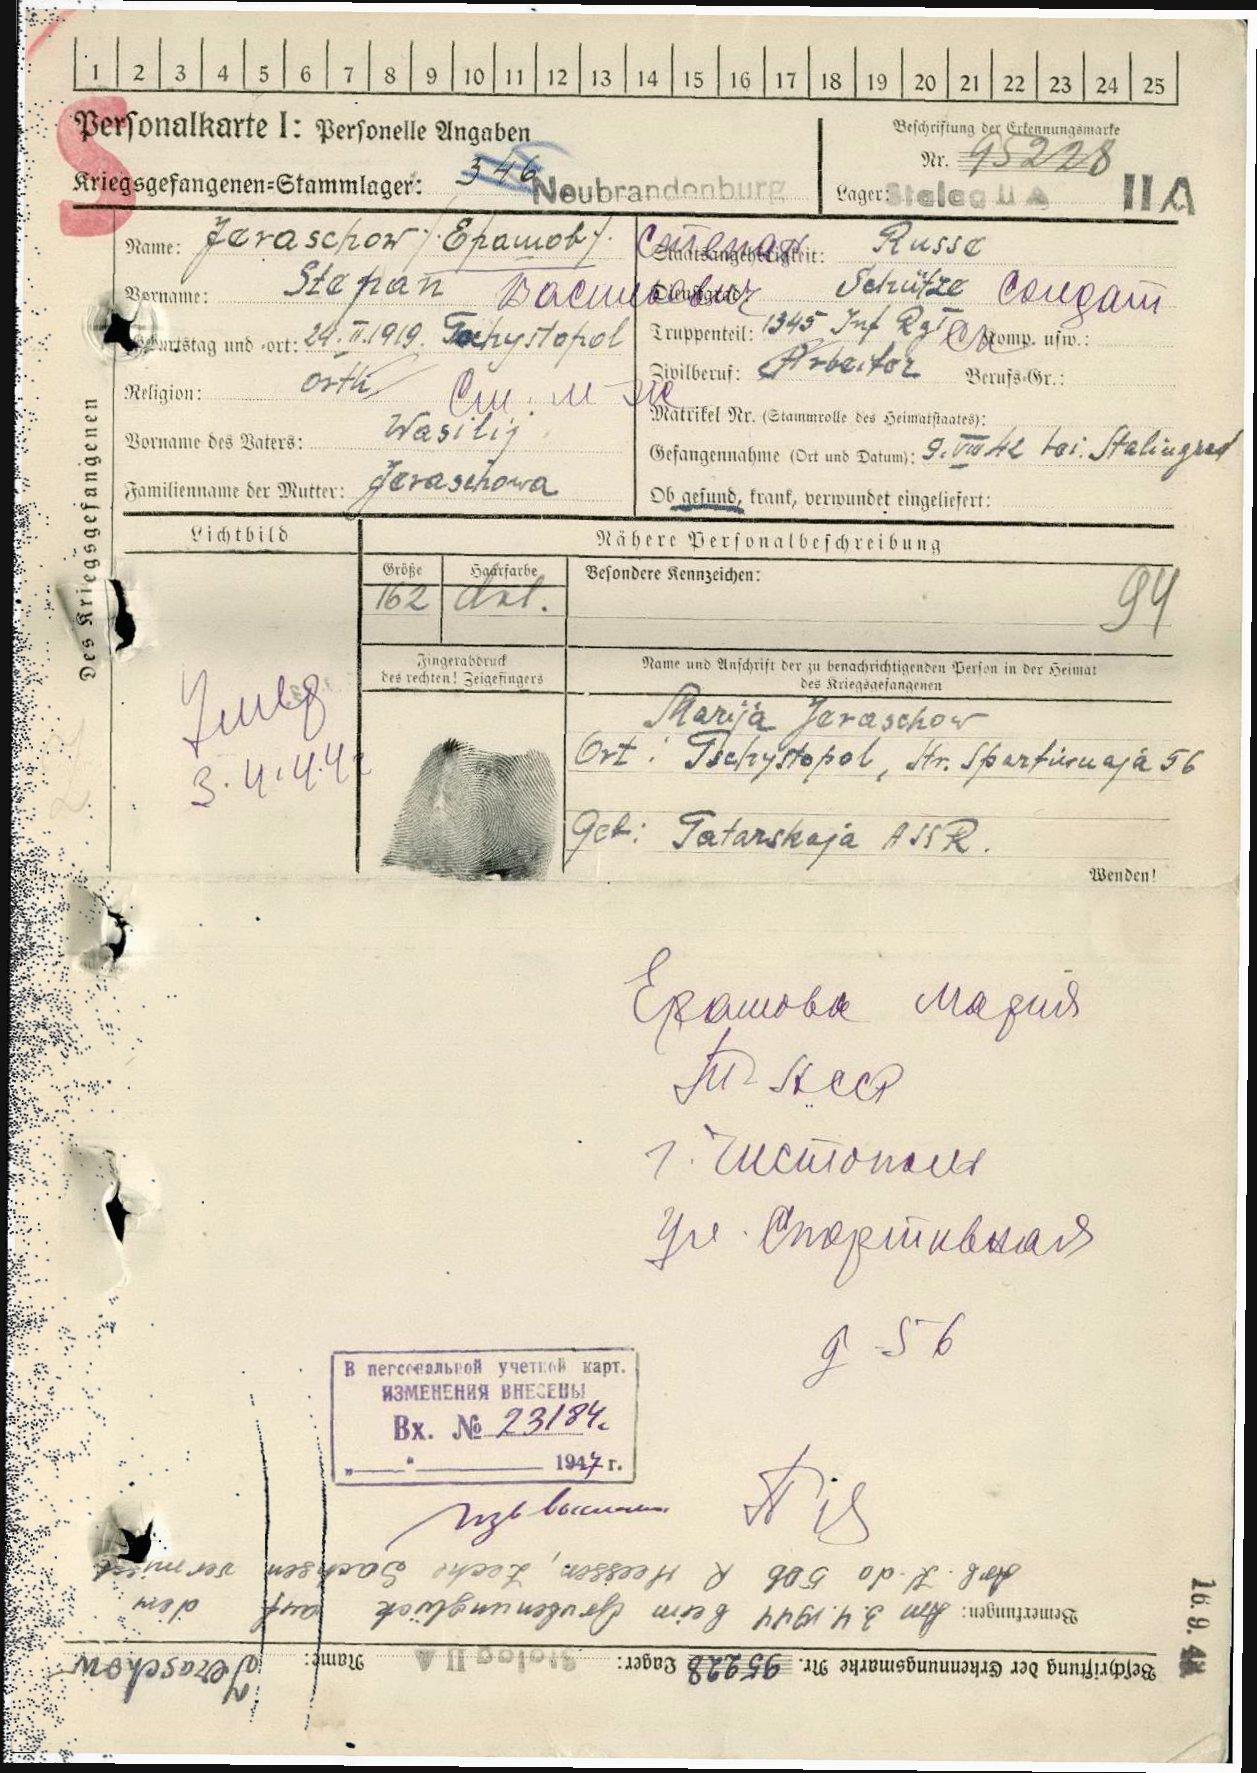 1 2 3 4 5 6 7 8 9 10 11 12 13 14 15 16 17 18 19 20 21 22 23 24 25
S
Personalkarte I: Personelle Angaben
Beschriftung der Erkennungsmarke
Nr. 95228
Kriegsgefangenen-Stammlager: 346 Neubrandenburg
Lager: Stalag II A II A
Des Kriegsgefangenen
Name: Jeraschow /Ерашов/. Степан
Staatsangehörigkeit: Russe
Vorname: Stepan Васильевич
Dienstgrad: Schütze Солдат
Geburtstag und -ort: 24.II.1919. Tschystopol
Truppenteil: 1345 Inf Rgt СП Komp. usw.:
Religion: orth
Zivilberuf: Arbeiter Berufs-Gr.:
Matrikel Nr. (Stammrolle des Heimatstaates):
Vorname des Vaters: Wasilij
Gefangennahme (Ort und Datum): 9.VIII 42 bei Stalingrad
Familienname der Mutter: Jeraschowa
Ob gesund, krank, verwundet eingeliefert:
Lichtbild
Nähere Personalbeschreibung
Größe Haarfarbe Besondere Kennzeichen:
162 dkl. 94
Fingerabdruck
des rechten! Zeigefingers
Name und Anschrift der zu benachrichtigenden Person in der Heimat
des Kriegsgefangenen
Умер
3.4.44г
Marija Jeraschow
Ort: Tschystopol, Str. Sportiwnaja 56
Geb: Tatarskaja ASSR.
Wenden!
Ерашова Мария
Т. АССР
г. Чистополь
ул. Спортивная
д 56
В персональной учетной карт.
ИЗМЕНЕНИЯ ВНЕСЕНЫ
Вх. № 23184.
„ " 1947 г.
Beschriftung der Erkennungsmarke Nr. 95228 Lager: Stalag II A Name: Jeraschow
Bemerkungen: Am 3.4.1944 beim Grubenunglück auf dem
Arb. K.do 506 R Heessen, Zeche Sachsen vermißt
16.9.44